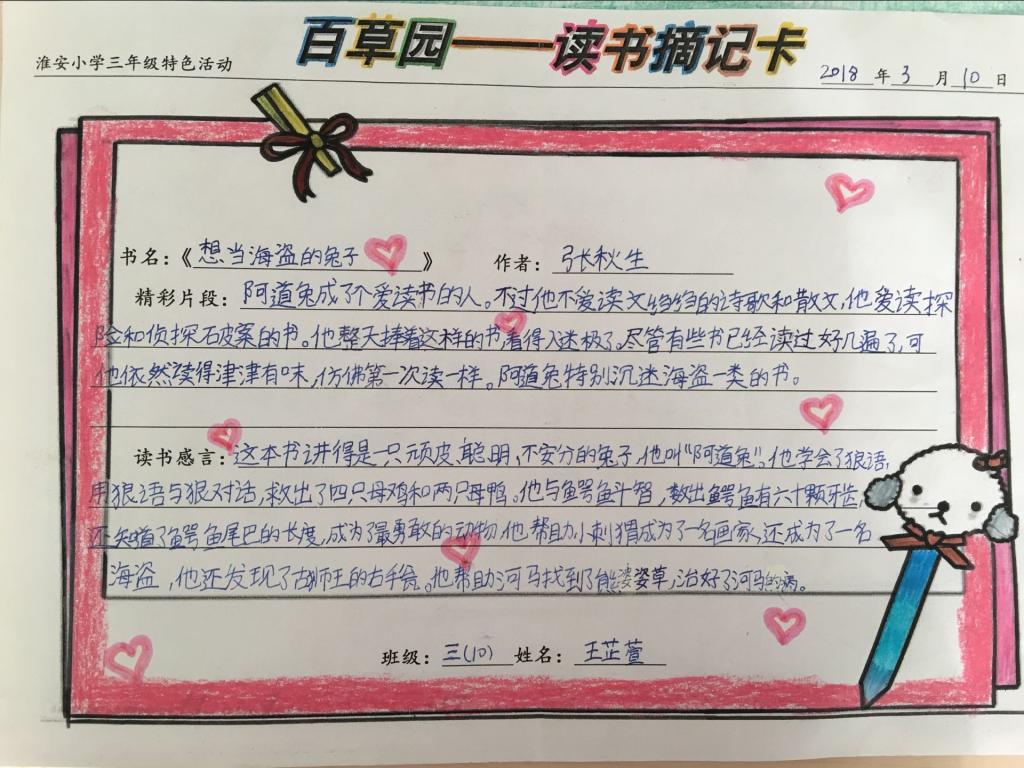 百草园——读书摘记卡
淮安小学三年级特色活动
2018年3月10日
书名：《想当海盗的兔子》 作者：张秋生
精彩片段：阿道兔成了个爱读书的人。不过他不爱读文绉绉的诗歌和散文，他爱读探
险和侦探石皮案的书。他整天捧着这样的书，看得入迷极了。尽管有些书已经读过好几遍了，可
他依然读得津津有味，仿佛第一次读一样。阿道兔特别沉迷海盗一类的书。
读书感言：这本书讲得是一只顽皮、聪明、不安分的兔子，他叫“阿道兔”。他学会了狼语，
用狼语与狼对话，救出了四只母鸡和两只母鸭。他与鳄鱼斗智，数出鳄鱼有六十颗牙齿，
还知道了鳄鱼尾巴的长度，成为了最勇敢的动物，他帮助小刺猬成为了一名画家，还成为了一名
海盗，他还发现了古狮王的右手绘。他帮助河马找到了熊婆婆草，治好了河马的病。
班级：三(10) 姓名：王芷萱